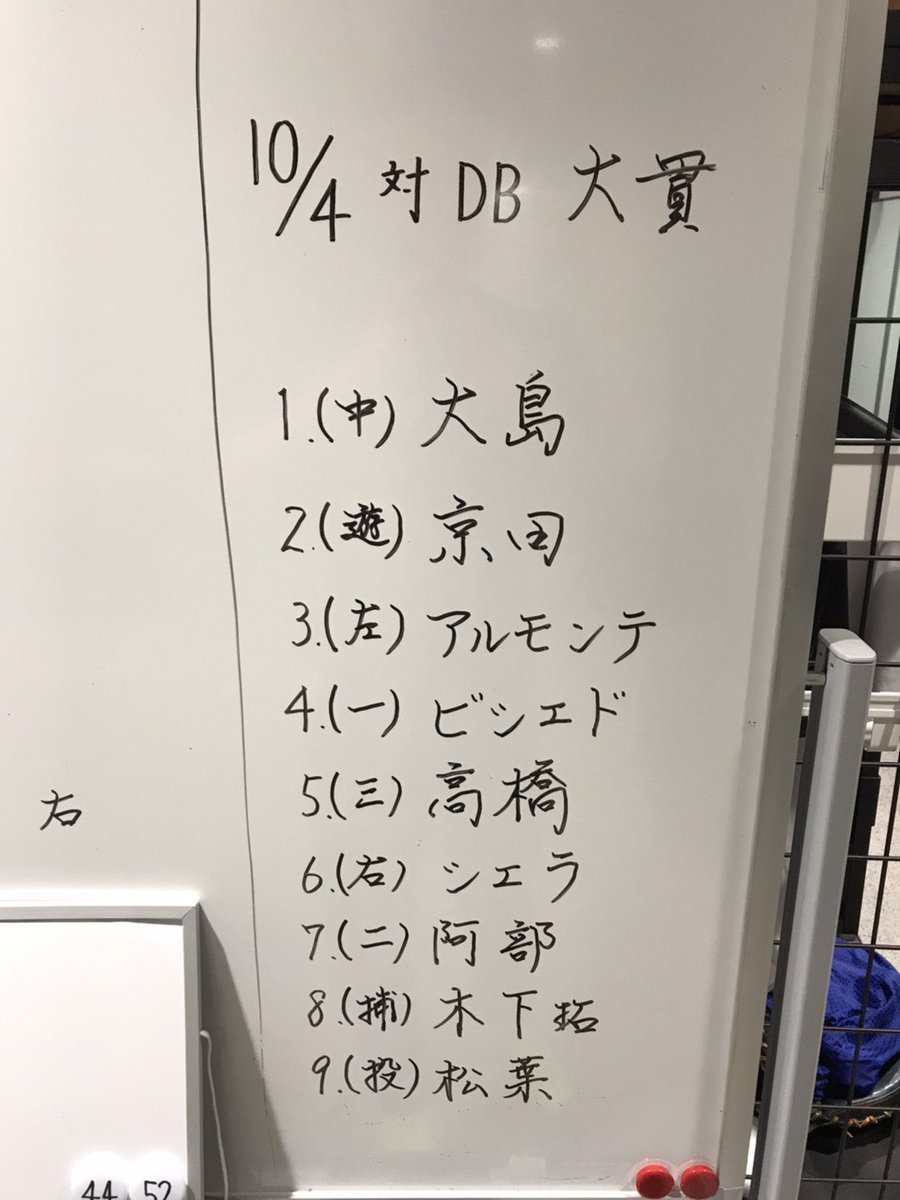 10/4 対 DB 大貫
1.(中) 大島
2.(遊) 京田
3.(左) アルモンテ
4.(一) ビシエド
5.(三) 高橋
右
6.(右) シエラ
7.(二) 阿部
8.(捕) 木下拓
9.(投) 松葉
44 52